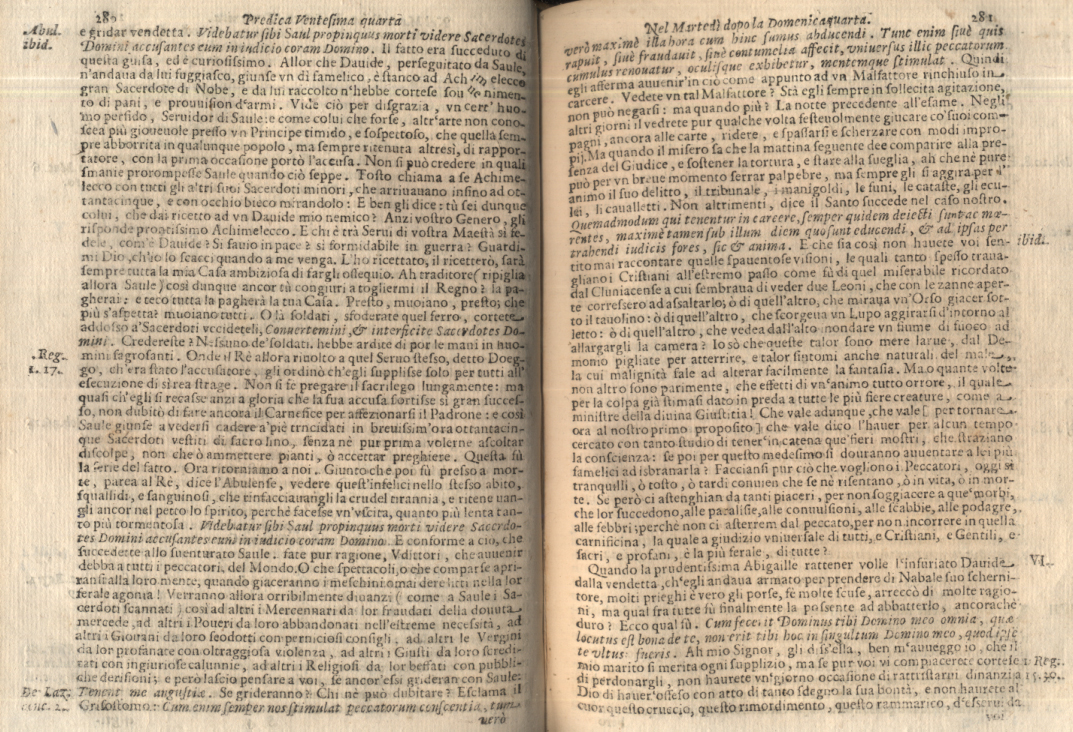 280 Predica Ventesima quarta
Abul. ibid.
e gridar vendetta. Videbatur sibi Saul propinquus morti videre Sacerdotes
Domini accusantes eum in iudicio coram Domino. Il fatto era succeduto di
questa guisa, ed è curiosissimo. Allor che Dauide, perseguitato da Saule,
n'andaua da lui fuggiasco, giunse vn dì famelico, è stanco ad Ach elecco
gran Sacerdote di Nobe, e da lui raccolto n'hebbe cortese sou nimen-
to di pani, e prouuision d'armi. Vide ciò per disgrazia, vn cert' huo-
mo perfido, Seruidor di Saule: e come colui che forse, altr'arte non cono-
scea più gioueuole presso vn Principe timido, e sospettoso, che quella sem-
pre abborrita in qualunque popolo, ma sempre ritenuta altresì, di rappor-
tatore, con la prima occasione portò l'accusa. Non si può credere in quali
smanie prorompesse Saule quando ciò seppe. Tosto chiama a se Achime-
lecco con tutti gli altri suoi Sacerdoti minori, che arriuauano insino ad ot-
tantacinque, e con occhio bieco mirandolo: E ben gli dice: tù sei dunque
colui, che dai ricetto ad vn Dauide mio nemico? Anzi vostro Genero, gli
risponde prontissimo Achimelecco. E chi è trà Serui di vostra Maestà sì fe-
dele, com'è Dauide? Sì sauio in pace? sì formidabile in guerra? Guardi-
mi Dio, ch'io lo scacci quando a me venga. L'ho ricettato, il ricetterò, sarà
sempre tutta la mia Casa ambiziosa di fargli ossequio. Ah traditore (ripiglia
allora Saule) così dunque ancor tù conguri a togliermi il Regno? la pa-
gherai: e teco tutta la pagherà la tua Casa. Presto, muoiano, presto; che
più s'aspetta? muoiano tutti. O là soldati, sfoderate quel ferro, correte
addosso a'Sacerdoti vccideteli, Conuertemini, & interficite Sacerdotes Do-
mini. Credereste? Nessuno de'soldati, hebbe ardite di por le mani in huo-
mini sagrosanti. Onde il Rè allora riuolto a quel Seruo stesso, detto Doeg-
1. Reg. 1. 17.
go, ch'era stato l'accusatore, gli ordinò ch'egli supplisse solo per tutti all'
esecuzione di sì rea strage. Non si fe pregare il sacrilego lungamente: ma
quasi ch'egli si recasse anzi a gloria che la sua accusa sortisse sì gran succes-
so, non dubitò di fare ancora il Carnefice per affezionarsi il Padrone: e così
Saule giunse a vedersi cadere a'piè trucidati in breuissim'ora ottantacin-
que Sacerdoti vestiti di sacro lino, senza nè pur prima volerne ascoltar
discolpe, non che ò ammettere pianti, ò accettar preghiere. Questa fù
la serie del fatto. Ora ritorniamo a noi. Giunto che poi fù presso a mor-
te, parea al Rè, dice l'Abulense, vedere quest'infelici nello stesso abito,
squallidi, e sanguinosi, che rinfacciauangli la crudel tirannia, e ritene uan-
gli ancor nel petto lo spirito, perchè facesse vn'vscita, quanto più lenta tan-
to più tormentosa. Videbatur sibi Saul propinquus morti videre Sacerdo-
tes Domini accusantes eum in iudicio coram Domino. E conforme a ciò, che
succedette allo suenturato Saule. fate pur ragione, Vditori, che auuenir
debba a tutti i peccatori, del Mondo. O che spettacoli, o che comparse apri-
ransi alla loro mente, quando giaceranno i meschini omai derelitti nella lor
ferale agonia! Verranno allora orribilmente dinanzi (come a Saule i Sa-
cerdoti scannati) così ad altri i Mercennari da lor fraudati della douuta
mercede, ad altri i Poueri da loro abbandonati nell'estreme necesità, ad
altri i Giouani da loro sedotti con perniciosi consigli, ad altri le Vergini
da lor profanate con oltraggiosa violenza, ad altri i Giusti da loro scredi-
tati con ingiuriose calunnie, ad altri i Religiosi da lor beffati con pubbli-
che derisioni; e però lascio pensare a voi, se ancor'essi grideran con Saule:
De Laz. conc. 2.
Tenent me angustiæ. Se grideranno? Chi nè può dubitare? Esclama il
Grisostomo: Cum enim semper nos stimulat peccatorum conscentia, tum
verò
Nel Martedì dopo la Domenica quarta. 281
verò maximè illa hora cum hinc sumus abducendi. Tunc enim siuè quis
rapuit, siuè fraudauit, siuè contumelia affecit, vniuersus illic peccatorum
cumulus renouatur, oculisque exhibetur, mentemque stimulat. Quindi
egli afferma auuenir'in ciò come appunto ad vn Malfattore rinchiuso in
carcere. Vedete vn tal Malfattore? Stà egli sempre in sollecita agitazione,
non può negarsi: ma quando più? La notte precedente all'esame. Negli
altri giorni il vedrete pur qualche volta festeuolmente giucare co'suoi com-
pagni, ancora alle carte, ridere, e spassarsi e scherzare con modi impro-
pij. Ma quando il misero sa che la mattina seguente dee comparire alla pre-
senza del Giudice, e sostener la tortura, e stare alla sueglia, ah che nè pure
può per vn breue momento serrar palpebre, ma sempre gli si aggira per l'
animo il suo delitto, il tribunale, i manigoldi, le funi, le cataste, gli ecu-
lei, li caualletti. Non altrimenti, dice il Santo succede nel caso nostro.
Quemadmodum qui tenentur in carcere, semper quidem deiecti sunt ac mœ-
rentes, maximè tamen sub illum diem quo sunt educendi, & ad ipsas per-
trahendi iudicis fores, sic & anima. E che sia così non hauete voi sen-
ibid.
tito mai raccontare quelle spauentose visioni, le quali tanto spesso traua-
gliano i Cristiani all'estremo passo come fù di quel miserabile ricordato
dal Cluniacense a cui sembraua di veder due Leoni, che con le zanne aper-
te corressero ad assaltarlo; ò di quell'altro, che miraua vn'Orso giacer sot-
to il tauolino: ò di quell'altro, che scorgeua vn Lupo aggirarsi d'intorno al
letto: ò di quell'altro, che vedea dall'alto inondare vn fiume di fuoco ad
allargargli la camera? Io sò che queste talor sono mere larue, dal De-
monio pigliate per atterrire, e talor sintomi anche naturali del male,
la cui malignità sale ad alterar facilmente la fantasia. Ma o quante volte
non altro sono parimente, che effetti di vn'animo tutto orrore, il quale
per la colpa già stimasi dato in preda a tutte le più fiere creature, come a
ministre della diuina Giustitia! Che vale adunque, che vale [ per tornare
ora al nostro primo proposito ] che vale dico l'hauer per alcun tempo
cercato con tanto studio di tener'in catena que'fieri mostri, che straziano
la conscienza: se poi per questo medesimo si douranno auuentare a lei più
famelici ad isbranarla? Facciansi pur ciò che vogliono i Peccatori, oggi sì
tranquilli, ò tosto, ò tardi conuien che se nè risentano, ò in vita, ò in mor-
te. Se però ci astenghian da tanti piaceri, per non soggiacere a que'morbi,
che lor succedono, alle paralisie, alle conuulsioni, alle scabbie, alle podagre,
alle febbri; perchè non ci asterrem dal peccato, per non incorrere in quella
carnificina, la quale a giudizio vniuersale di tutti, e Cristiani, e Gentili, e
sacri, e profani, è la più ferale, di tutte?
VI.
Quando la prudentissima Abigaille rattener volle l'infuriato Dauide
dalla vendetta, ch'egli andaua armato per prendere di Nabale suo scherni-
tore, molti prieghi è vero gli porse, fè molte scuse, arreccò di molte ragio-
ni, ma qual fra tutte fù finalmente la possente ad abbatterlo, ancorachè
duro? Ecco qual fù. Cum fecerit Dominus tibi Domino meo omnia, quæ
locutus est bona de te, non erit tibi hoc in singultum Domino meo, quod ipse
te vltus fueris. Ah mio Signor, gli diss'ella, ben m'auueggio io, che il
1. Reg. 15. 30.
mio marito si merita ogni supplizio, ma se pur voi vi compiacerete cortese
di perdonargli, non haurete vn'giorno occasione di rattristarui dinanzi a
Dio di hauer'offeso con atto di tanto sdegno la sua bontà, e non haurete al
cuor questo cruccio, questo rimordimento, questo rammarico, d'esserui da
voi